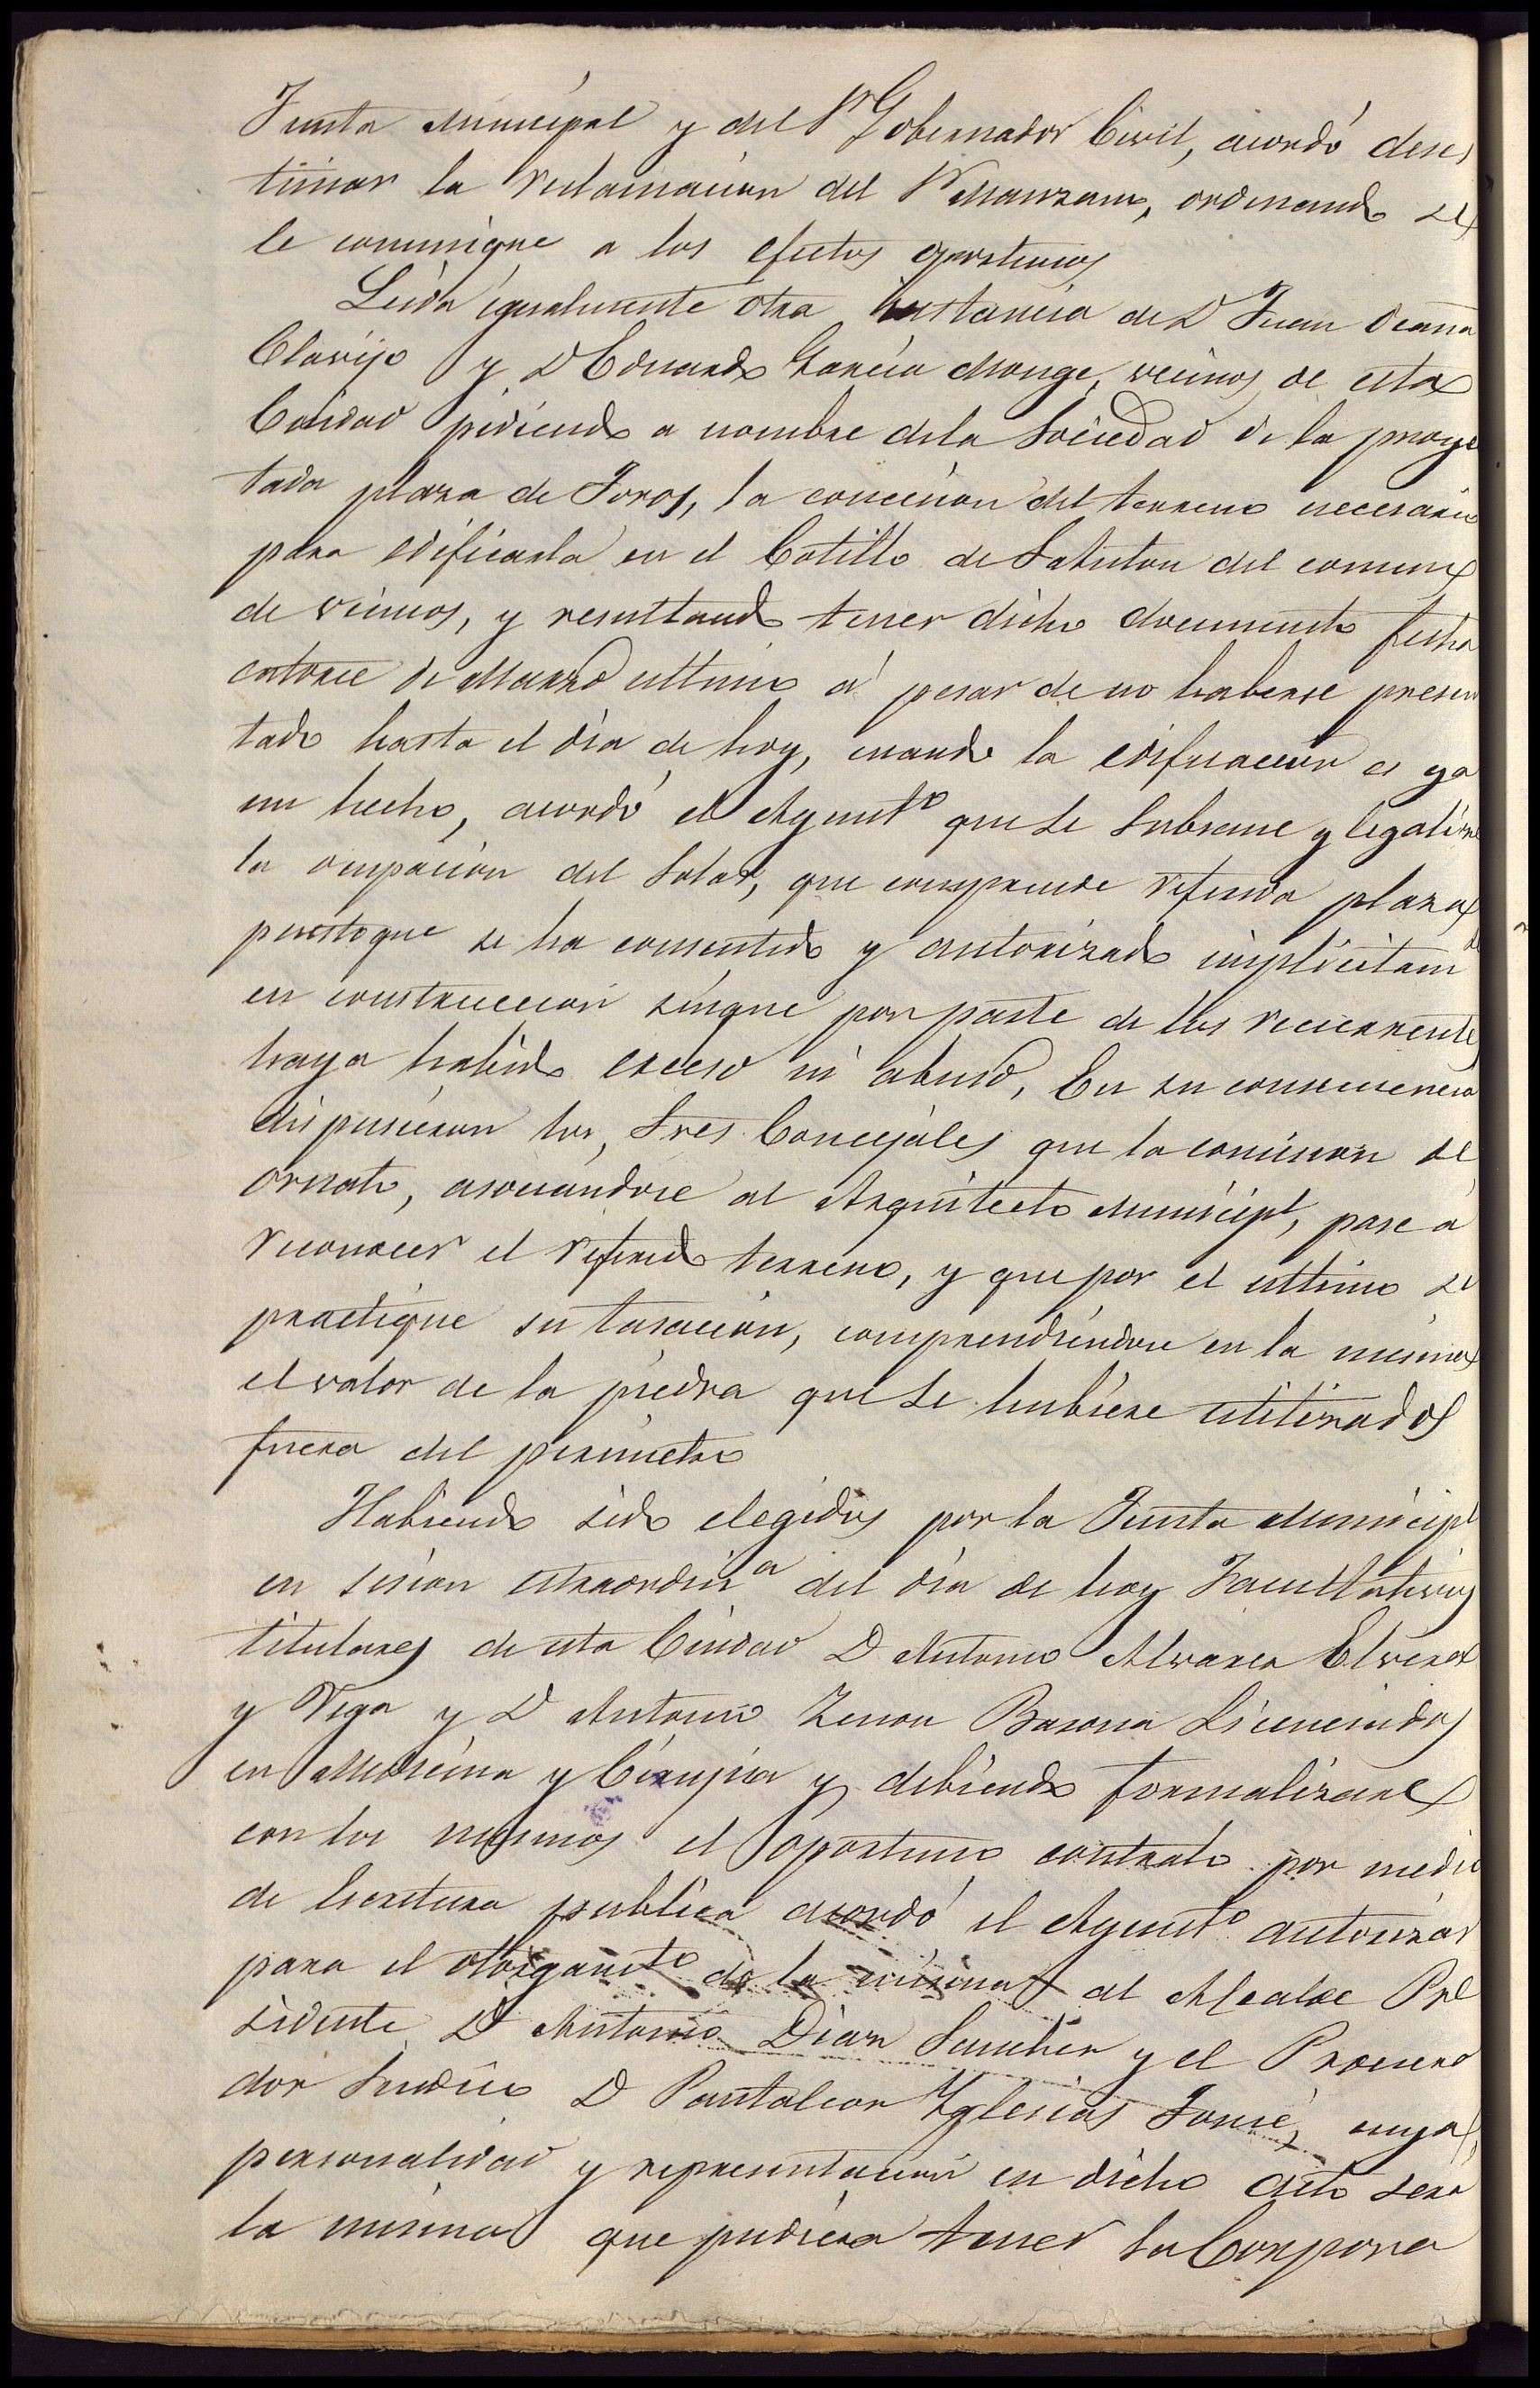 Junta Municipal y del Sr Gobernador Civil, acordó deses
timar la reclamacion del Sr Manzano, ordenando se
le comunique a los efectos oportunos
Leida igualmente otra instancia de D Juan Ocaña
Clavijo y D Eduardo Garcia Monge, vecinos de esta
Ciudad pidiendo a nombre dela Sociedad de la proyec
tada plaza de Toros, la concecion del terreno necesario
para edificarla en el Cotillo de del comun
de vecinos, y resultando tener dicho documento fecha
catorce de Marzo ultimo á pesar de no haberse presen
tado hasta el dia de hoy, cuando la edificacion es ya
un hecho, acordó el Ayuntº que se subsane y legalize
la ocupacion del Solar, que comprende referida plaza
puestoque se ha consentido y autorizado implicitamte
su construccion sinque por parte de los recurrentes
haya habido exceso ni abuso, En su consecuencia
dispusieron los Sres Concejales que la comision de
ornato, asociandose al Arquitecto Municipl, pase a
reconocer el referido terreno, y que por el ultimo se
practique su tasacion, comprendiendose en la misma
el valor de la piedra que se hubiere utilizado
fuera del perimetro
Habiendo sido elegidos por la Junta Municipl
en sesion estraordinª del dia de hoy Facultativos
titulares de esta Ciudad D Antonio Alvarez Elvira
y Vega y D Antonio Zenon Barona Licenciados
en Medicina y Cirujia y debiendo formalizarse
con los mismos el oportuno contrato por medio
de Escritura publica acordó el Ayuntº autorizar
para el otorgamtº de la misma al Alcalde Pre
sidente D Antonio Diaz Sanchez y el Procura
dor Sindico D Pantaleon Yglesias cuya
personalidad y representacion en dicho acto sera
la misma que pudiera tener la Corpora